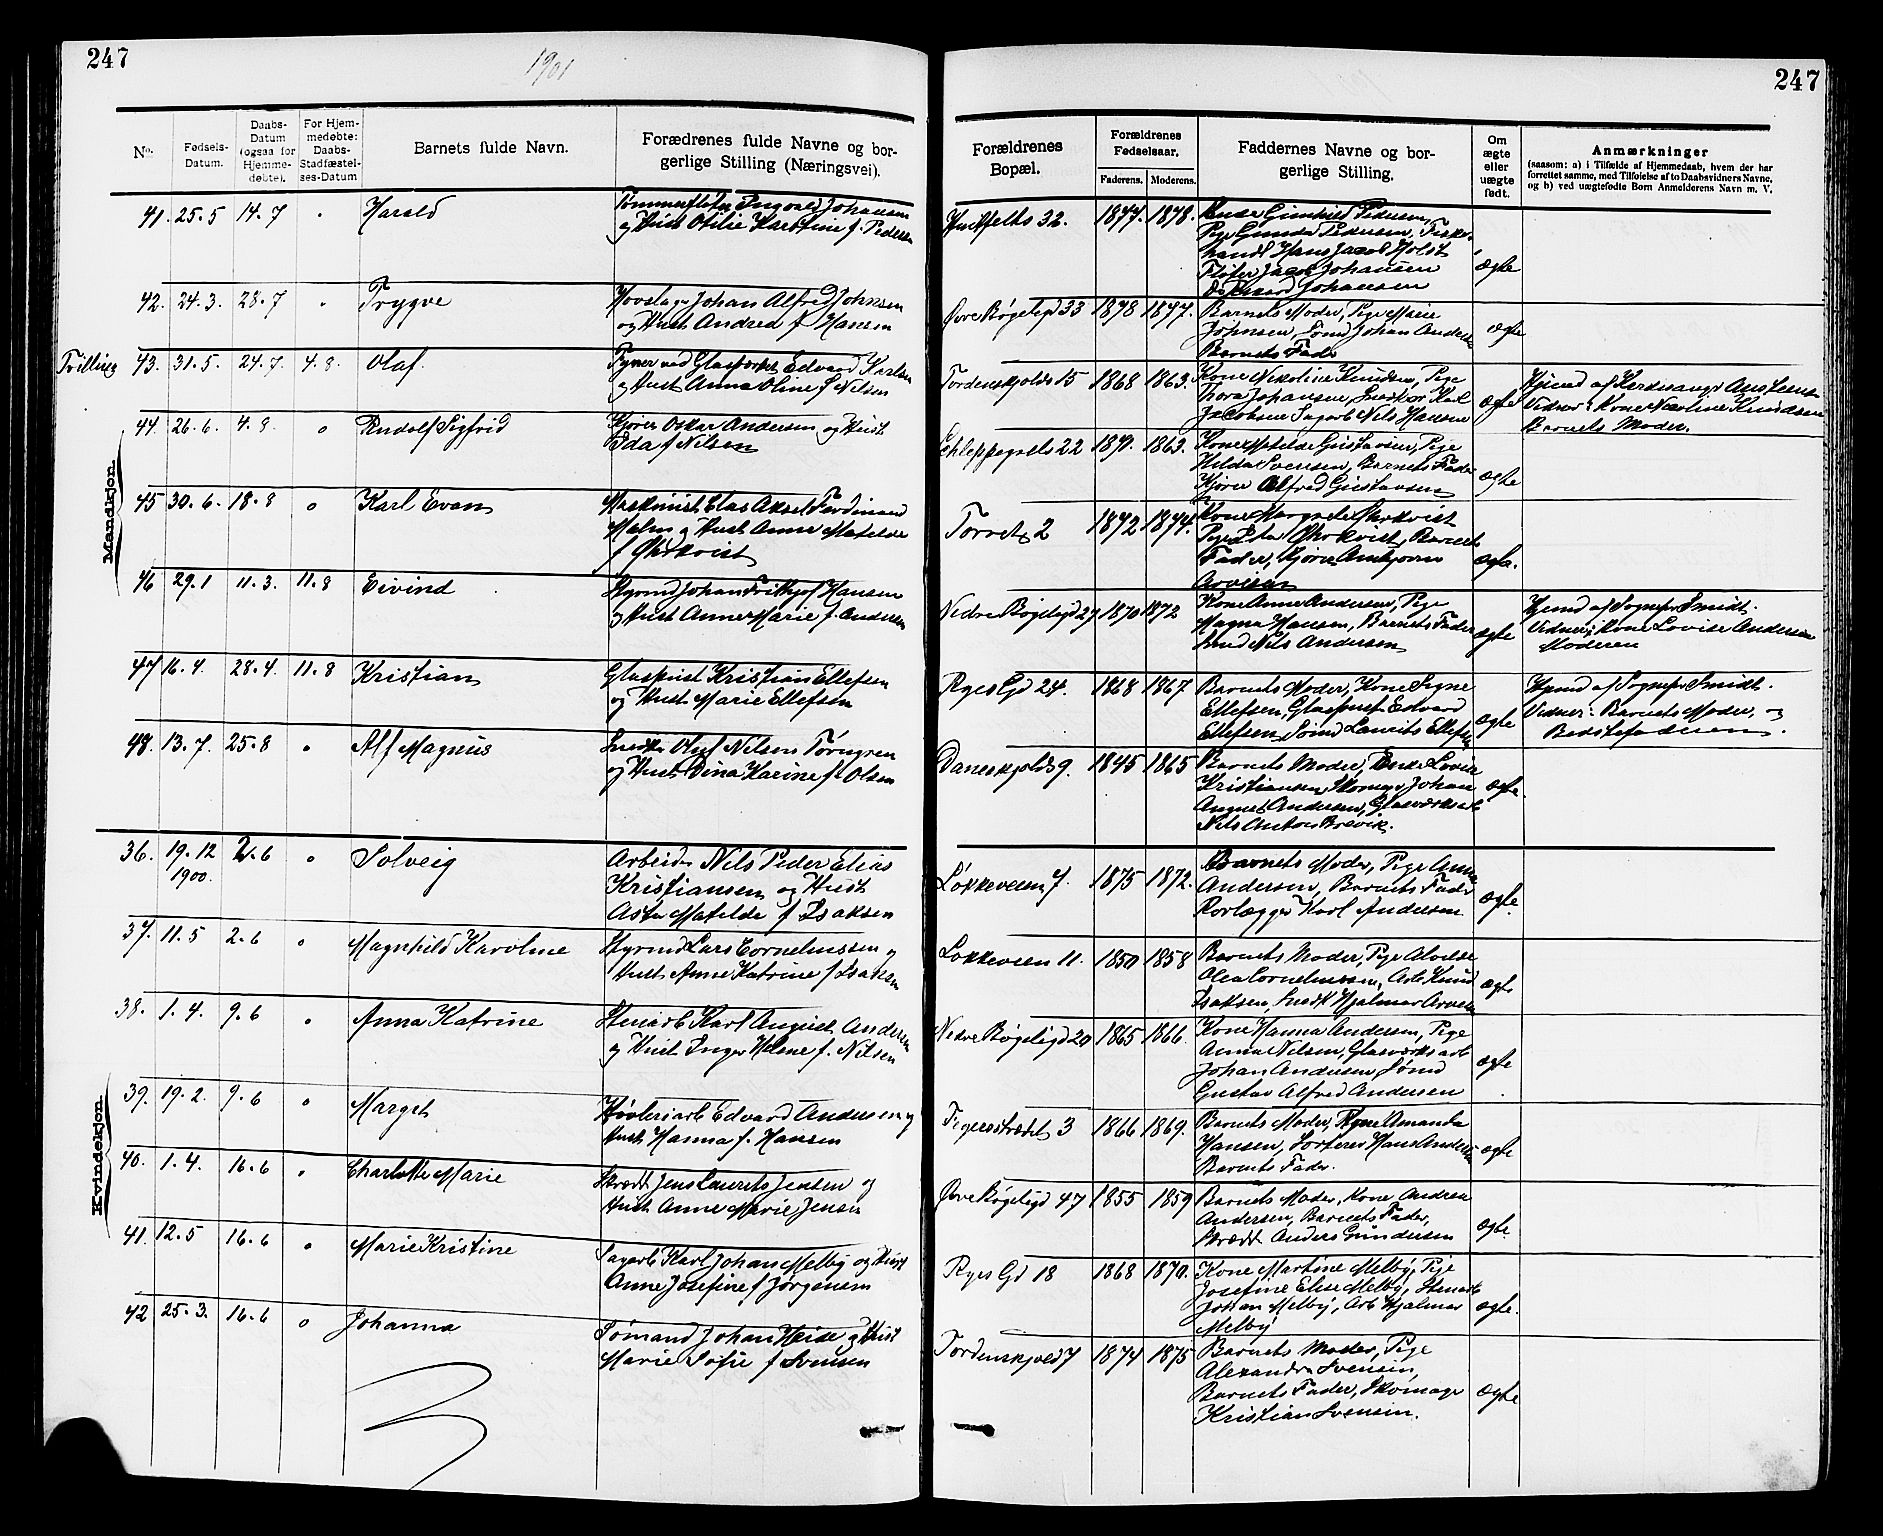 247
1901
247
No.
Fødsels-
Datum.
Daabs-
Datum
(ogsaa for
Hjemme-
døbte).
For Hjem-
medøbte:
Daabs-
Stadfæstel-
ses-Datum
Barnets fulde Navn.
Forædrenes fulde Navne og bor-
gerlige Stilling (Næringsvei).
Forældrenes
Bopæl.
Forældrenes
Fødselsaar.
Faderens.
Moderens.
Faddernes Navne og bor-
gerlige Stilling.
Om
ægte
eller
uægte
født.
Anmærkninger
(saasom: a) i Tilfælde af Hjemmedaab, hvem der har
forrettet samme, med Tilføielse af to Daabsvidners Navne,
og b) ved uægtefødte Børn Anmelderens Navn m. V.
Mandkjøn.
41. 25.5 14.7 " Harald
Tømmerfløter Ingvald Johansen
og Hust Otilie Karoline f. Pedersen
32. 1877. 1878.
Gunhild Pedersen,
Pige Gunda Pedersen, Fisker
handl Hans Jacob Holst
Fløter Jacob Johansen
Johansen
ægte
42. 24.3. 28.7 " Trygve
Hovslager Johan Alfred Johnsen
og Hust Andrea f Hansen
Øvre Bøgeligd 33 1878 1877.
Barnets Moder, Pige Marie
Johnsen, Sømd Johan Andersen
Barnets Fader
ægte
Trilling 43. 31.5. 24.7. 4.8. Olaf.
Fyrer ved Glasværket Edvard Karlsen
og Hust Anna Oline f Nilsen
Tordenskjolds 15 1868 1863.
Kone Nikoline Knudsen, Pige
Thora Johansen, Snedker Karl
Jacobsen Sagarb Nils Hansen
ægte
Hjemd af
Vidner: Kone Nicoline Knudsen
Barnets Moder.
44. 26.6. 4.8. " Rudolf Sigfrid
Kjører Oskar Andersen og Hust
Eda f Nilsen
22 1871. 1863.
Kone Matilde Gustavsen, Pige
Hilda Svensen, Barnets Fader
Kjører Alfred Gustavsen
ægte
45 30.6. 18.8 " Karl Evan
Maskinist Elas Aksel Ferdinand
Malm og Hust Anne Matilde
f Øhrkvist
Torvet 2 1872 1874.
Kone Margrete Øhrkvist
Pige Eda Øhrkvist, Barnets
Fader, Kjører Anbjørn
Arvesen
ægte.
46 29.1 11.3. 11.8 Eivind
Styrmd Johan Frithjof Hansen
og Hust Anne Marie f. Andersen
Nedre Bøgeligd 27 1870 1872
Kone Anne Andersen, Pige
Magna Hansen, Barnets Fader
Nils Andersen
ægte
Hjemd af Sognepr Smidt.
Vidner: Kone Lovise Andersen
Moderen
47 16.4. 28.4. 11.8 Kristian
Glaspust Kristian Ellefsen
og Hust Marie Ellefsen
Ryes Gd 24. 1868 1867.
Barnets Moder, Kone Signe
Ellefsen, Glaspust Edvard
Ellefsen Sømd Laurits Ellefsen
ægte
Hjemd af Sognepr Smidt.
Vidner: Barnets Moder, og
Bedstefaderen.
48. 13.7. 25.8 " Alf Magnus
Snedker Oluf Nilsen Törngren
og Hust Dina Karine f. Olsen
Daneskjolds 9. 1845 1865
Barnets Moder, Enke Lovise
Kristiansen, Skomager Johan
August Andersen, Glasværksarb
Nils Anton Brevik.
ægte.
Kvindekjøn.
36. 19.12 1900. 2.6 " Solveig
Arbeider Nils Peder Elias
Kristiansen og Hust
Asta Matilde f Isaksen
Løkkeveien 7. 1875 1872.
Barnets Moder, Pige Anna
Andersen, Barnets Fader
Rørlægger Karl Andersen
ægte.
37. 11.5 2.6 " Magnhild Karoline
Styrmd Lars Corneliussen og
Hust Anne Katrine f Isaksen
Løkkeveien 11. 1850 1858
Barnets Moder, Pige Alvilde
Olea Corneliussen, Arb Knud
Isaksen, Snedk Hjalmar Arvesen
ægte
38. 1.4. 9.6 " Anna Katrine
Stenarb Karl August Andersen
og Hust Inger Helene f. Nilsen
Nedre Bøgeligd 20 1865 1866.
Kone Hanna Andersen, Pige
Anna Nilsen, Glasværksarb
Johan Andersen Sømd
Gustav Alfred Andersen
ægte
39. 19.2. 9.6 " Margit
Høvleriarb Edvard Andersen og
Hust Hanna f. Hansen
3 1866 1869.
Barnets Moder, Pige Amanda
Hansen, Sorterer Hans Andersen
Barnets Fader.
ægte
40. 1.4. 16.6 " Charlotte Marie
Skrædd Jens Laurits Jensen og
Hust Anne Marie Jensen
Øvre Bøgeligd 47 1855 1859
Barnets Moder, Kone Andrea
Andersen, Barnets Fader,
Skrædd Anders Gundersen
ægte
41. 12.5 16.6 " Marie Kristine
Sagarb Karl Johan Melby og Hust
Anne Josefine f Jørgensen
Ryes Gd 18 1868 1870.
Kone Martine Melby, Pige
Josefine Elise Melby, Stenarb
Johan Melby, Arb Hjalmar
Melby
ægte.
42 25.3. 16.6 " Johanna
Sømand Johan Heide og Hust
Marie Sofie f Svensen
Tordenskjold 7 1874 1875
Barnets Moder, Pige
Alexandra Svensen,
Barnets Fader, Skomager
Kristian Svensen.
ægte